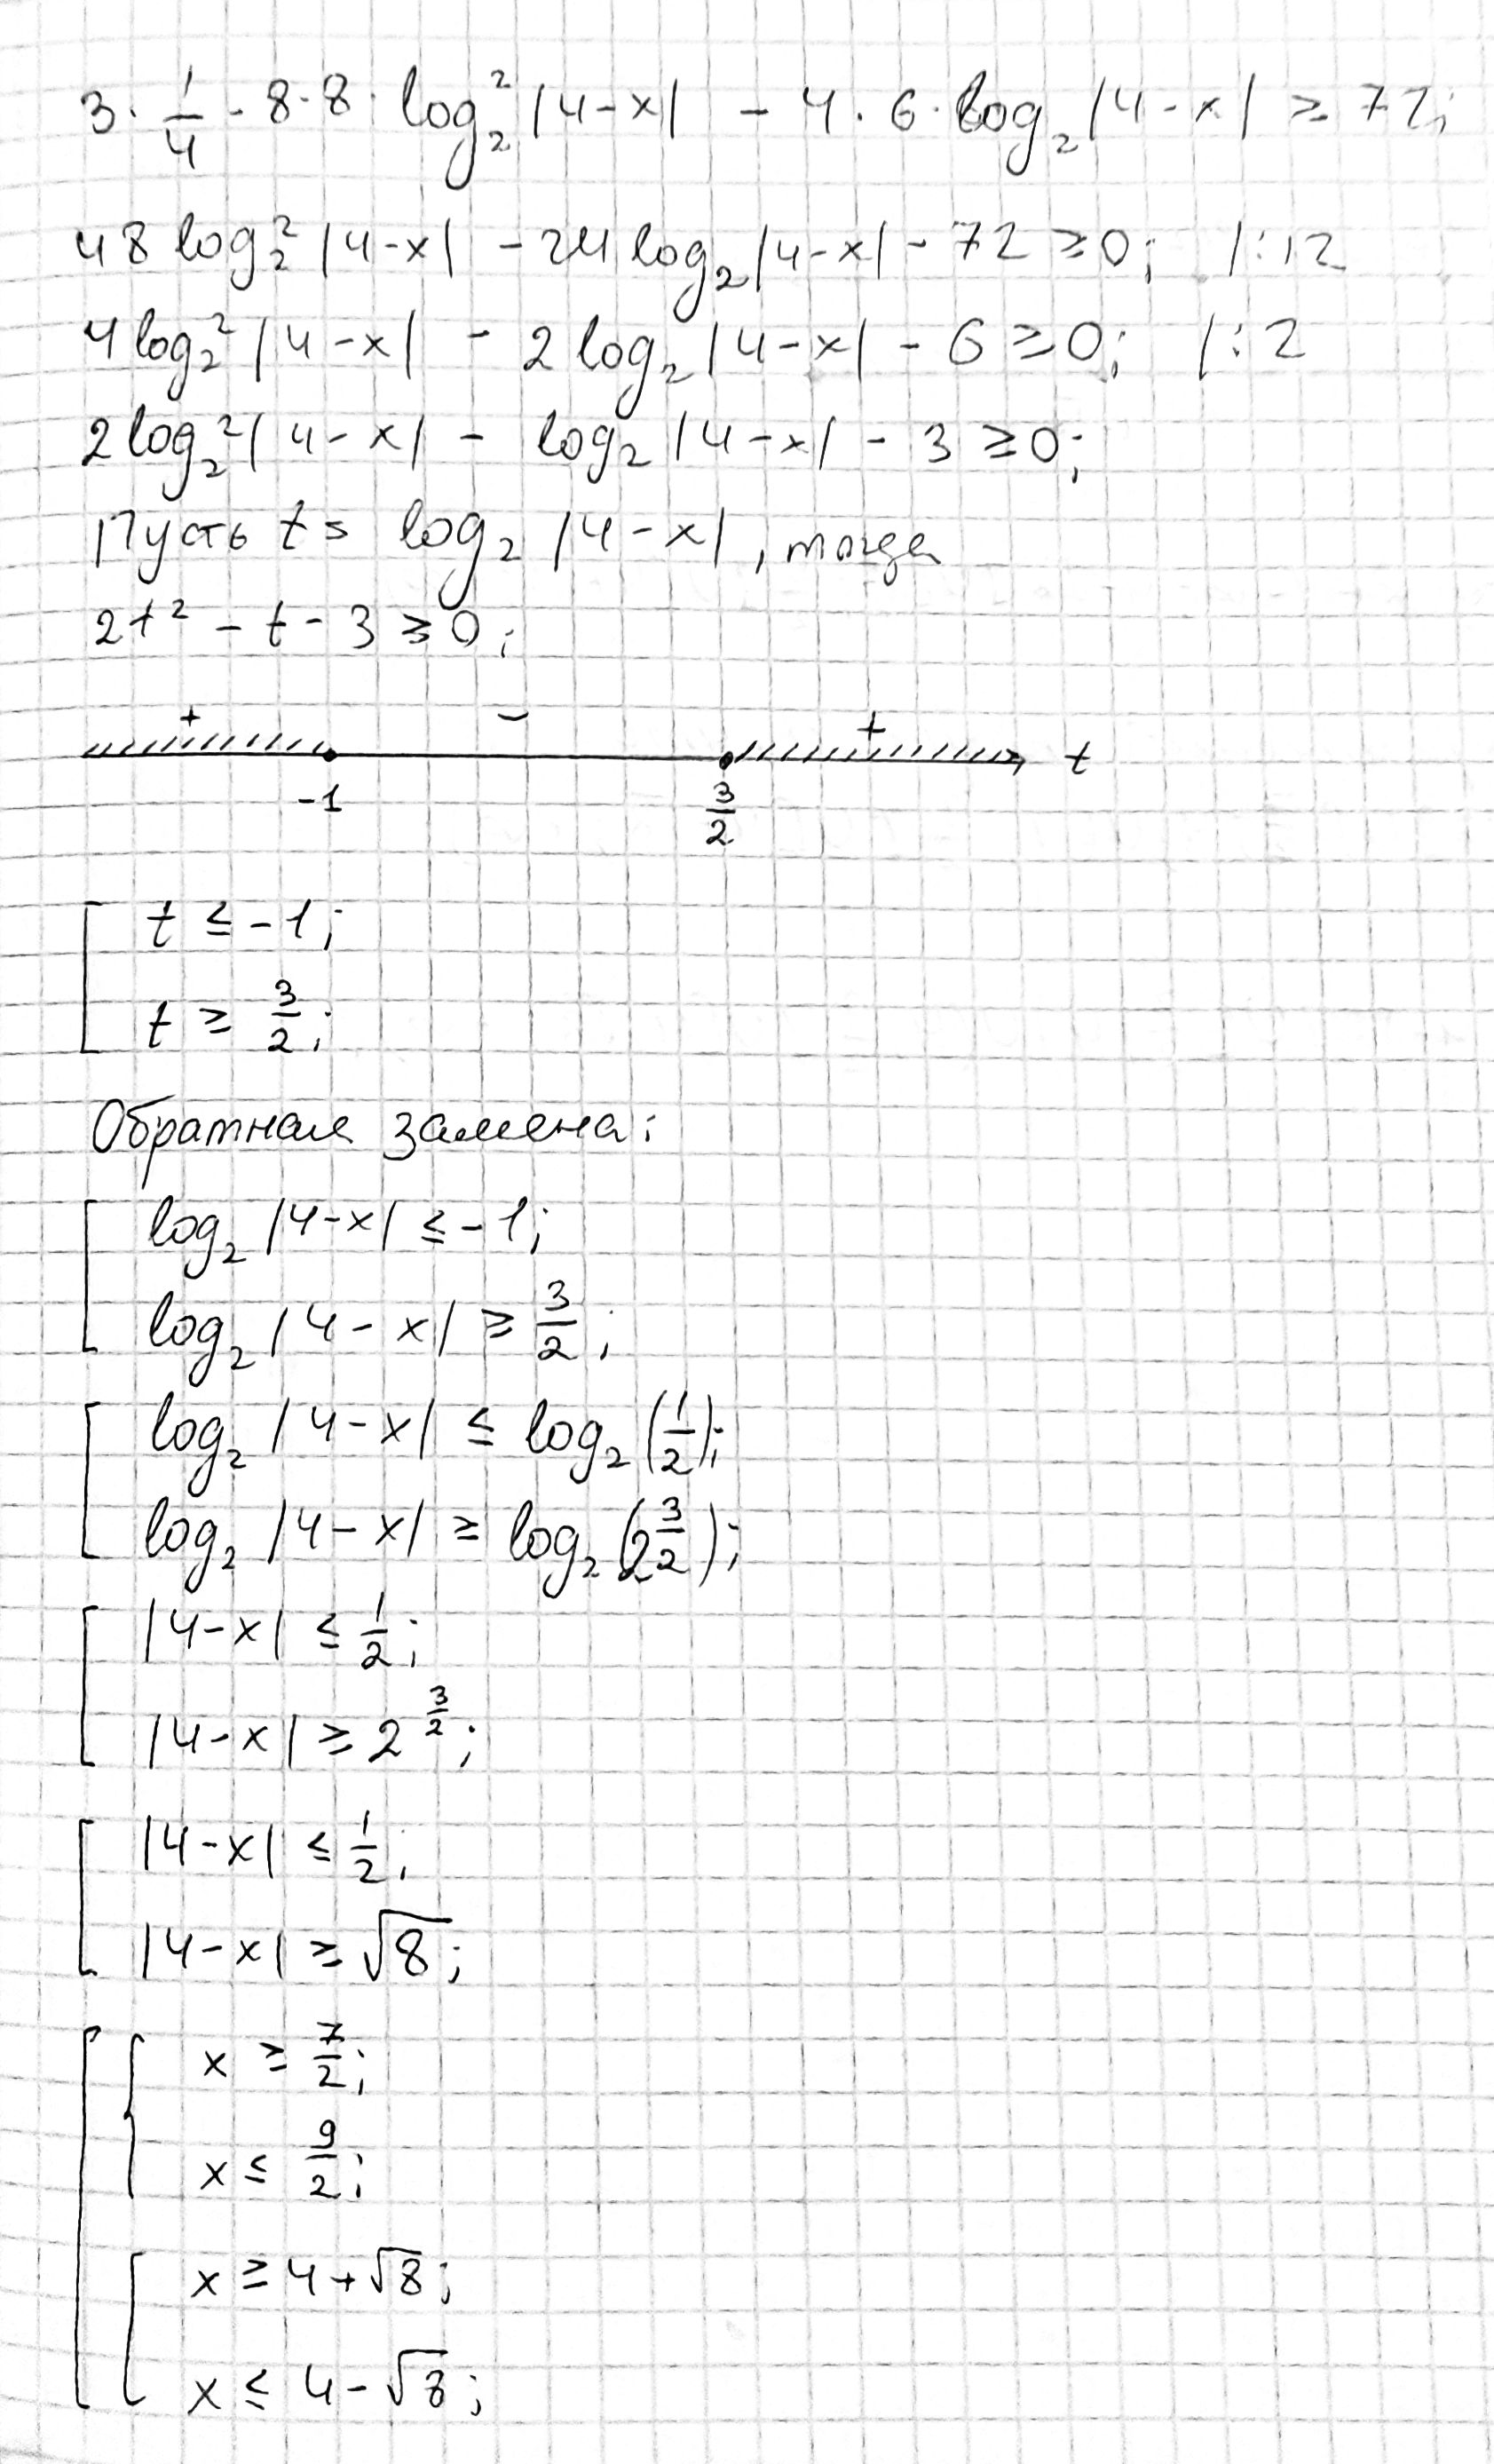 3 · 1/4 · 8 · 8 · log₂² |4-x| - 4 · 6 · log₂ |4-x| ≥ 72;
48 log₂² |4-x| - 24 log₂ |4-x| - 72 ≥ 0; |:12
4 log₂² |4-x| - 2 log₂ |4-x| - 6 ≥ 0; |:2
2 log₂² |4-x| - log₂ |4-x| - 3 ≥ 0;
Пусть t = log₂ |4-x|, тогда
2t² - t - 3 ≥ 0;
+ - +
t
-1 3/2
t ≤ -1;
t ≥ 3/2;
Обратная замена:
log₂ |4-x| ≤ -1;
log₂ |4-x| ≥ 3/2;
log₂ |4-x| ≤ log₂ (1/2);
log₂ |4-x| ≥ log₂ (2^(3/2));
|4-x| ≤ 1/2;
|4-x| ≥ 2^(3/2);
|4-x| ≤ 1/2;
|4-x| ≥ √8;
x ≥ 7/2;
x ≤ 9/2;
x ≥ 4+√8;
x ≤ 4-√8;